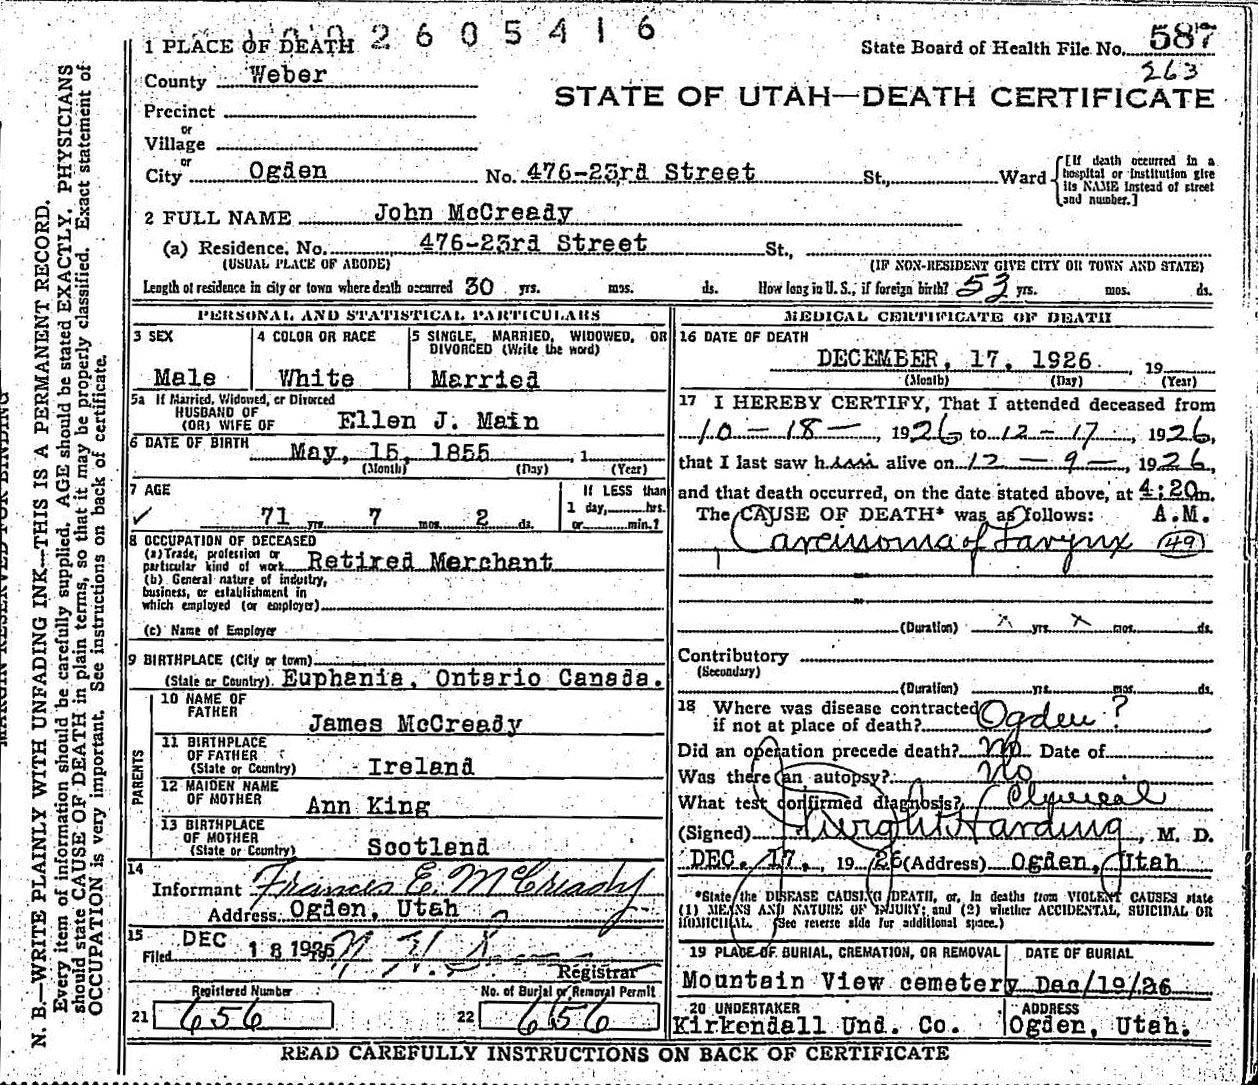 2605416
1 PLACE OF DEATH
State Board of Health File No. 587
263
County Weber
STATE OF UTAH—DEATH CERTIFICATE
Precinct
or
Village
or
City Ogden No. 476-23rd Street St., Ward
[If death occurred in a hospital or institution give its NAME instead of street and number.]
2 FULL NAME John McCready
(a) Residence. No. 476-23rd Street St.,
(USUAL PLACE OF ABODE) (IF NON-RESIDENT GIVE CITY OR TOWN AND STATE)
Length of residence in city or town where death occurred 30 yrs. mos. ds. How long in U. S., if foreign birth? 53 yrs. mos. ds.
PERSONAL AND STATISTICAL PARTICULARS
3 SEX
Male
4 COLOR OR RACE
White
5 SINGLE, MARRIED, WIDOWED, OR DIVORCED (Write the word)
Married
5a If Married, Widowed, or Divorced
HUSBAND OF
(OR) WIFE OF Ellen J. Main
6 DATE OF BIRTH May, 15, 1855 , 1
(Month) (Day) (Year)
7 AGE
✓ 71 yrs. 7 mos. 2 ds.
If LESS than
1 day, hrs.
or min.?
8 OCCUPATION OF DECEASED
(a) Trade, profession or
particular kind of work Retired Merchant
(b) General nature of industry,
business, or establishment in
which employed (or employer)
(c) Name of Employer
9 BIRTHPLACE (City or town)
(State or Country). Euphania, Ontario Canada.
PARENTS
10 NAME OF
FATHER James McCready
11 BIRTHPLACE
OF FATHER
(State or Country) Ireland
12 MAIDEN NAME
OF MOTHER Ann King
13 BIRTHPLACE
OF MOTHER
(State or Country) Scotland
14
Informant Frances E. McCready
Address Ogden, Utah
15
Filed DEC 18 1926
Registrar
Registered Number
21 656
No. of Burial or Removal Permit
22 656
MEDICAL CERTIFICATE OF DEATH
16 DATE OF DEATH
DECEMBER, 17, 1926 , 19
(Month) (Day) (Year)
17 I HEREBY CERTIFY, That I attended deceased from
10 - 18 - , 1926 to 12 - 17 , 1926,
that I last saw him alive on 12 - 9 - , 1926,
and that death occurred, on the date stated above, at 4:20 m.
The CAUSE OF DEATH* was as follows: A.M.
Carcinoma of Larynx 49
(Duration) x yrs. x mos. ds.
Contributory
(Secondary)
(Duration) yrs. mos. ds.
18 Where was disease contracted
if not at place of death? Ogden ?
Did an operation precede death? No Date of
Was there an autopsy? No
What test confirmed diagnosis?
(Signed) Harding, M. D.
DEC. 17, 1926 (Address) Ogden, Utah
*State the DISEASE CAUSING DEATH, or, in deaths from VIOLENT CAUSES state
(1) MEANS AND NATURE OF INJURY; and (2) whether ACCIDENTAL, SUICIDAL OR
HOMICIDAL. (See reverse side for additional space.)
19 PLACE OF BURIAL, CREMATION, OR REMOVAL
Mountain View cemetery
DATE OF BURIAL
Dec/19/26
20 UNDERTAKER
Kirkendall Und. Co.
ADDRESS
Ogden, Utah.
READ CAREFULLY INSTRUCTIONS ON BACK OF CERTIFICATE
MARGIN RESERVED FOR BINDING
N. B.—WRITE PLAINLY WITH UNFADING INK—THIS IS A PERMANENT RECORD.
Every item of information should be carefully supplied. AGE should be stated EXACTLY. PHYSICIANS
should state CAUSE OF DEATH in plain terms, so that it may be properly classified. Exact statement of
OCCUPATION is very important. See instructions on back of certificate.